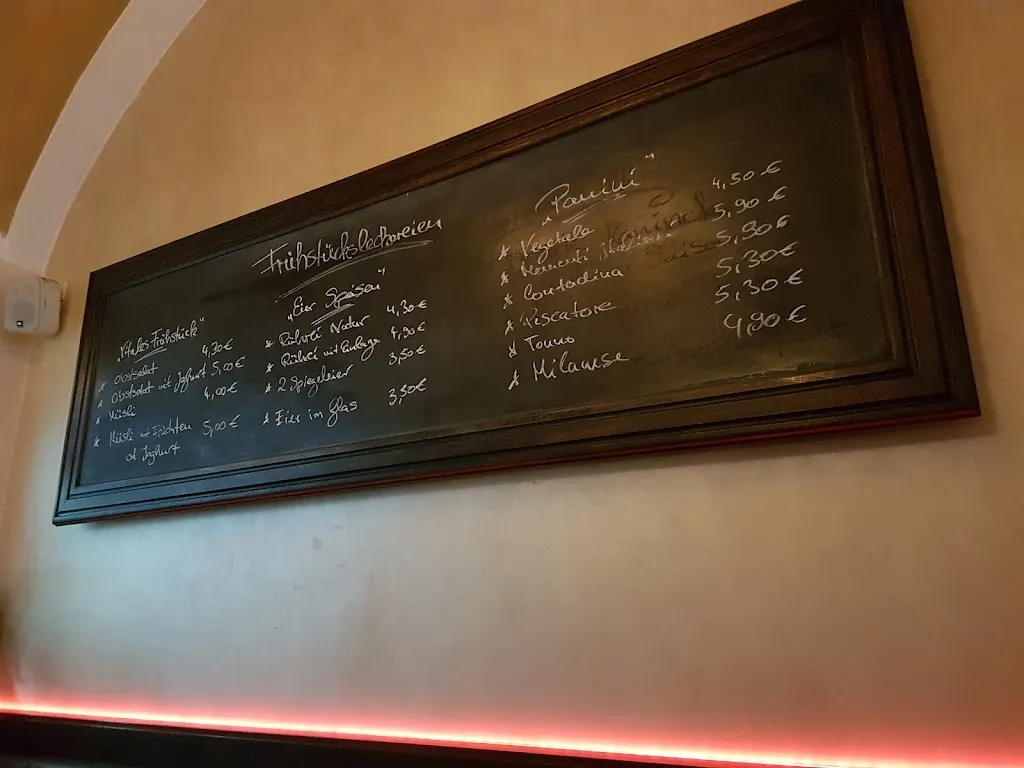 Frühstücksleckereien
„Vitales Frühstück"
* Obstsalat 4,30€
* Obstsalat mit Joghurt 5,00€
* Müsli 4,00€
* Müsli mit Früchten 5,00€
od Joghurt
„Eier Speisen"
* Rührei Natur 4,30€
* Rührei mit Einlage 4,90€
* 2 Spiegeleier 3,50€
* Eier im Glas 3,50€
„Panini"
* Vegetale 4,50€
* Momenti Italiani 5,90€
* Contadina 5,30€
* Piscatore 5,30€
* Tonno 5,30€
* Milanese 4,90€